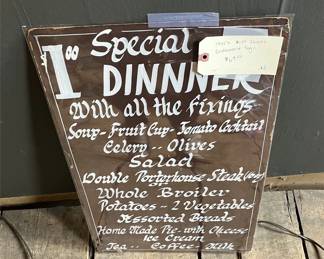 Special
$1.00 DINNNER
With all the fixings
Soup - Fruit Cup - Tomato Cocktail
Celery -- Olives
Salad
Double Porterhouse Steak
Whole Broiler
Potatoes - 2 Vegetables
Assorted Breads
Home Made Pie - with Cheese
Ice Cream
Tea -- Coffee - Milk